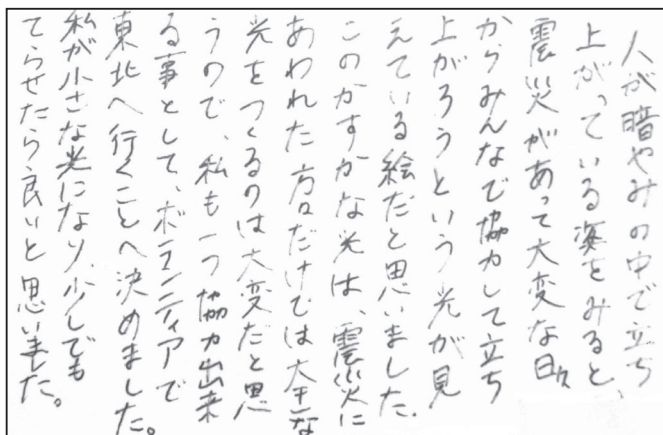 人が暗やみの中で立ち
上がっている姿をみると、
震災があって大変な日々
からみんなで協力して立ち
上がろうという光が見
えている絵だと思いました。
このかすかな光は、震災に
あわれた方々だけでは大きな
光をつくるのは大変だと思
うので、私も一つ協力出来
る事として、ボランティアで
東北へ行くことへ決めました。
私が小さな光になり、少しでも
てらせたら良いと思いました。